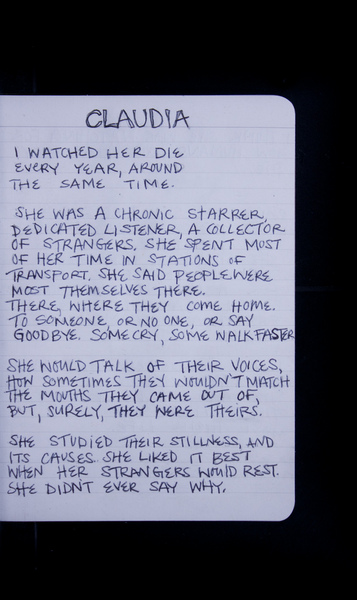 CLAUDIA
I WATCHED HER DIE
EVERY YEAR, AROUND
THE SAME TIME.
SHE WAS A CHRONIC STARRER,
DEDICATED LISTENER, A COLLECTOR
OF STRANGERS. SHE SPENT MOST
OF HER TIME IN STATIONS OF
TRANSPORT. SHE SAID PEOPLE WERE
MOST THEMSELVES THERE.
THERE, WHERE THEY COME HOME.
TO SOMEONE, OR NO ONE, OR SAY
GOODBYE. SOME CRY, SOME WALK FASTER
SHE WOULD TALK OF THEIR VOICES,
HOW SOMETIMES THEY WOULDN'T MATCH
THE MOUTHS THEY CAME OUT OF,
BUT, SURELY, THEY WERE THEIRS.
SHE STUDIED THEIR STILLNESS, AND
ITS CAUSES. SHE LIKED IT BEST
WHEN HER STRANGERS WOULD REST.
SHE DIDN'T EVER SAY WHY.